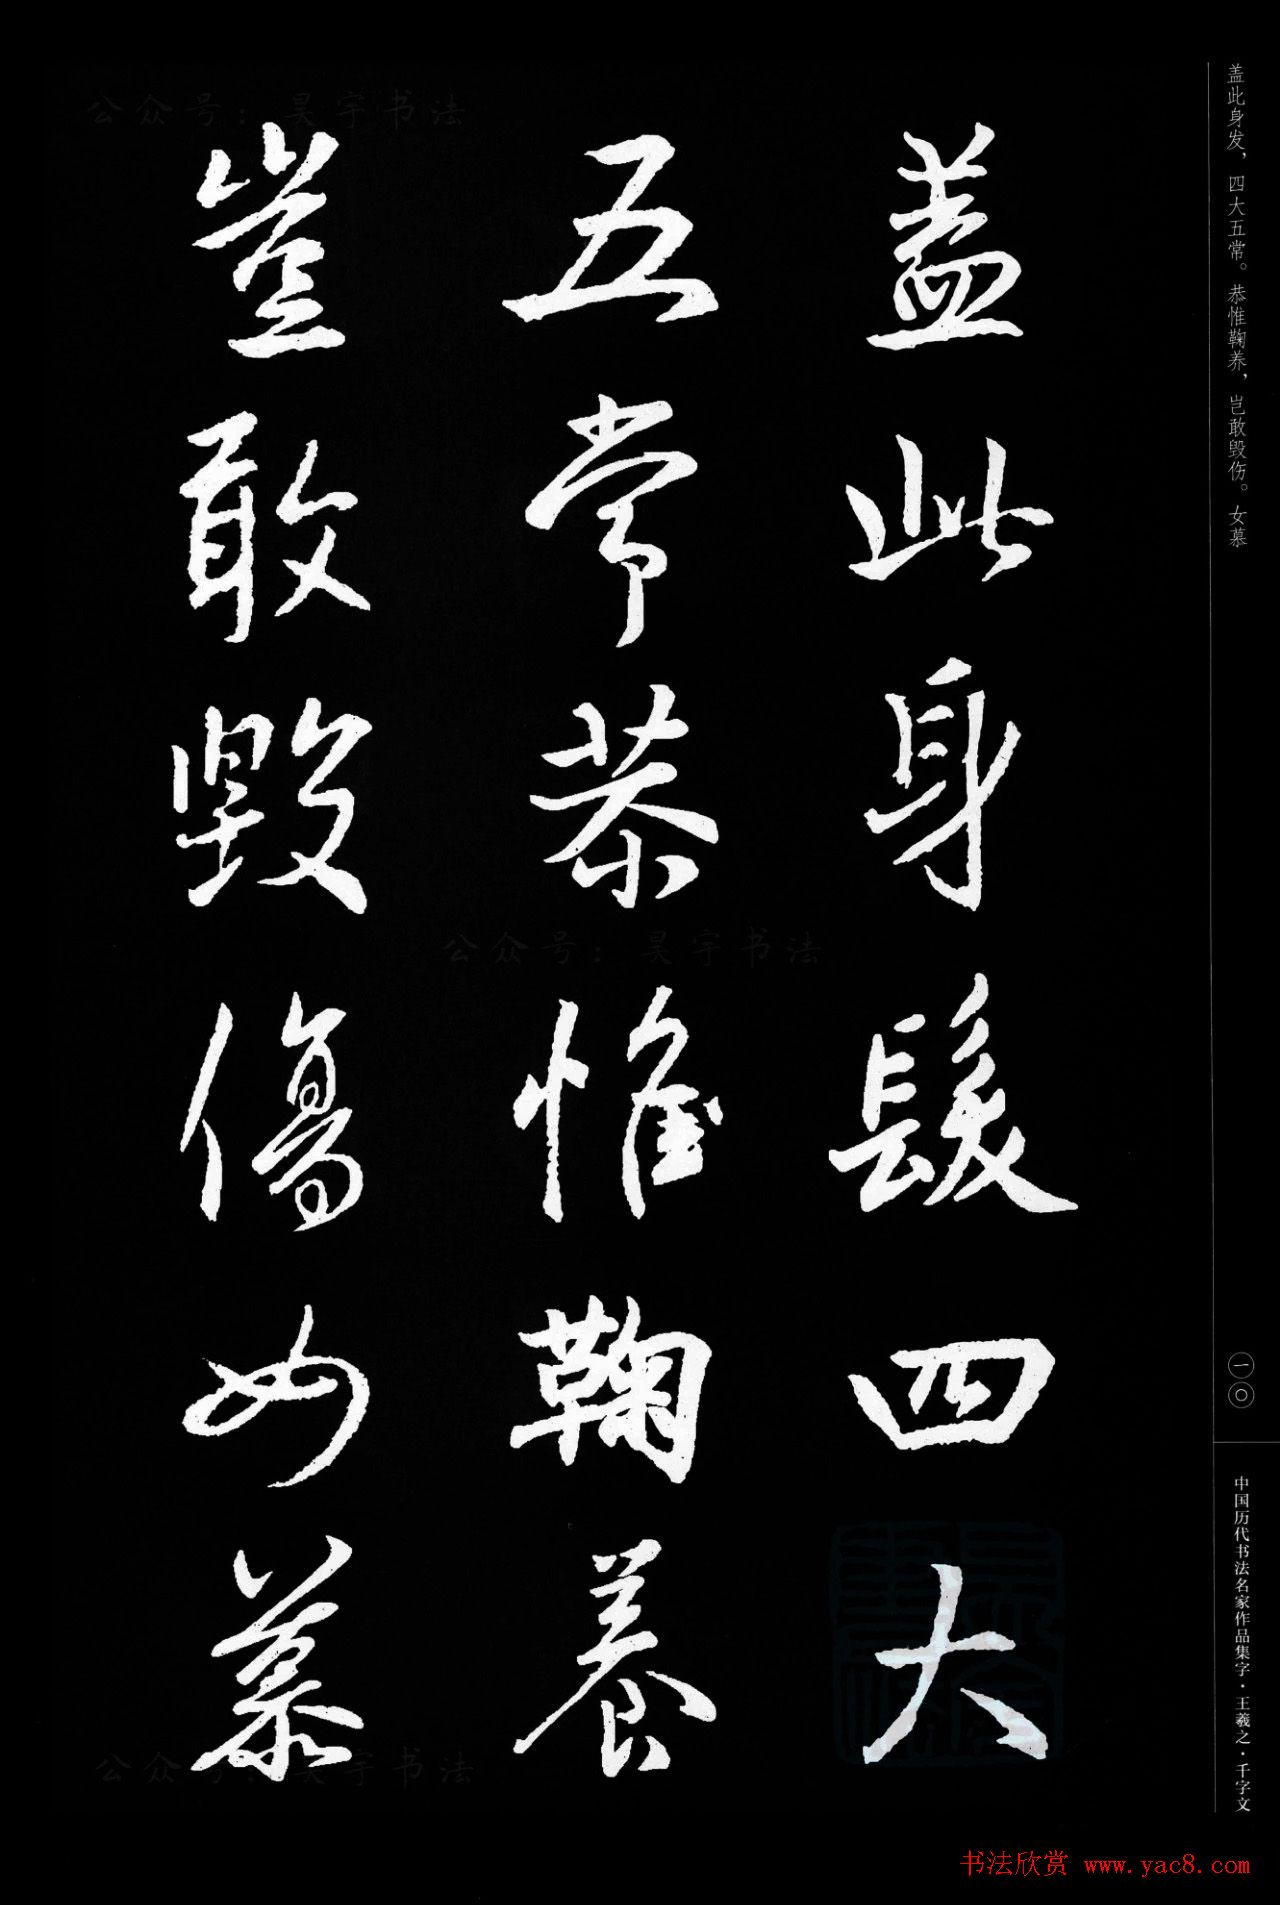 盖此身发，四大五常。恭惟鞠养，岂敢毁伤。女慕
蓋此身髮四大
五常恭惟鞠養
豈敢毀傷女慕
一〇
中国历代书法名家作品集字·王羲之·千字文
公众号：昊宇书法
公众号：昊宇书法
公众号：昊宇书法
书法欣赏 www.yac8.com